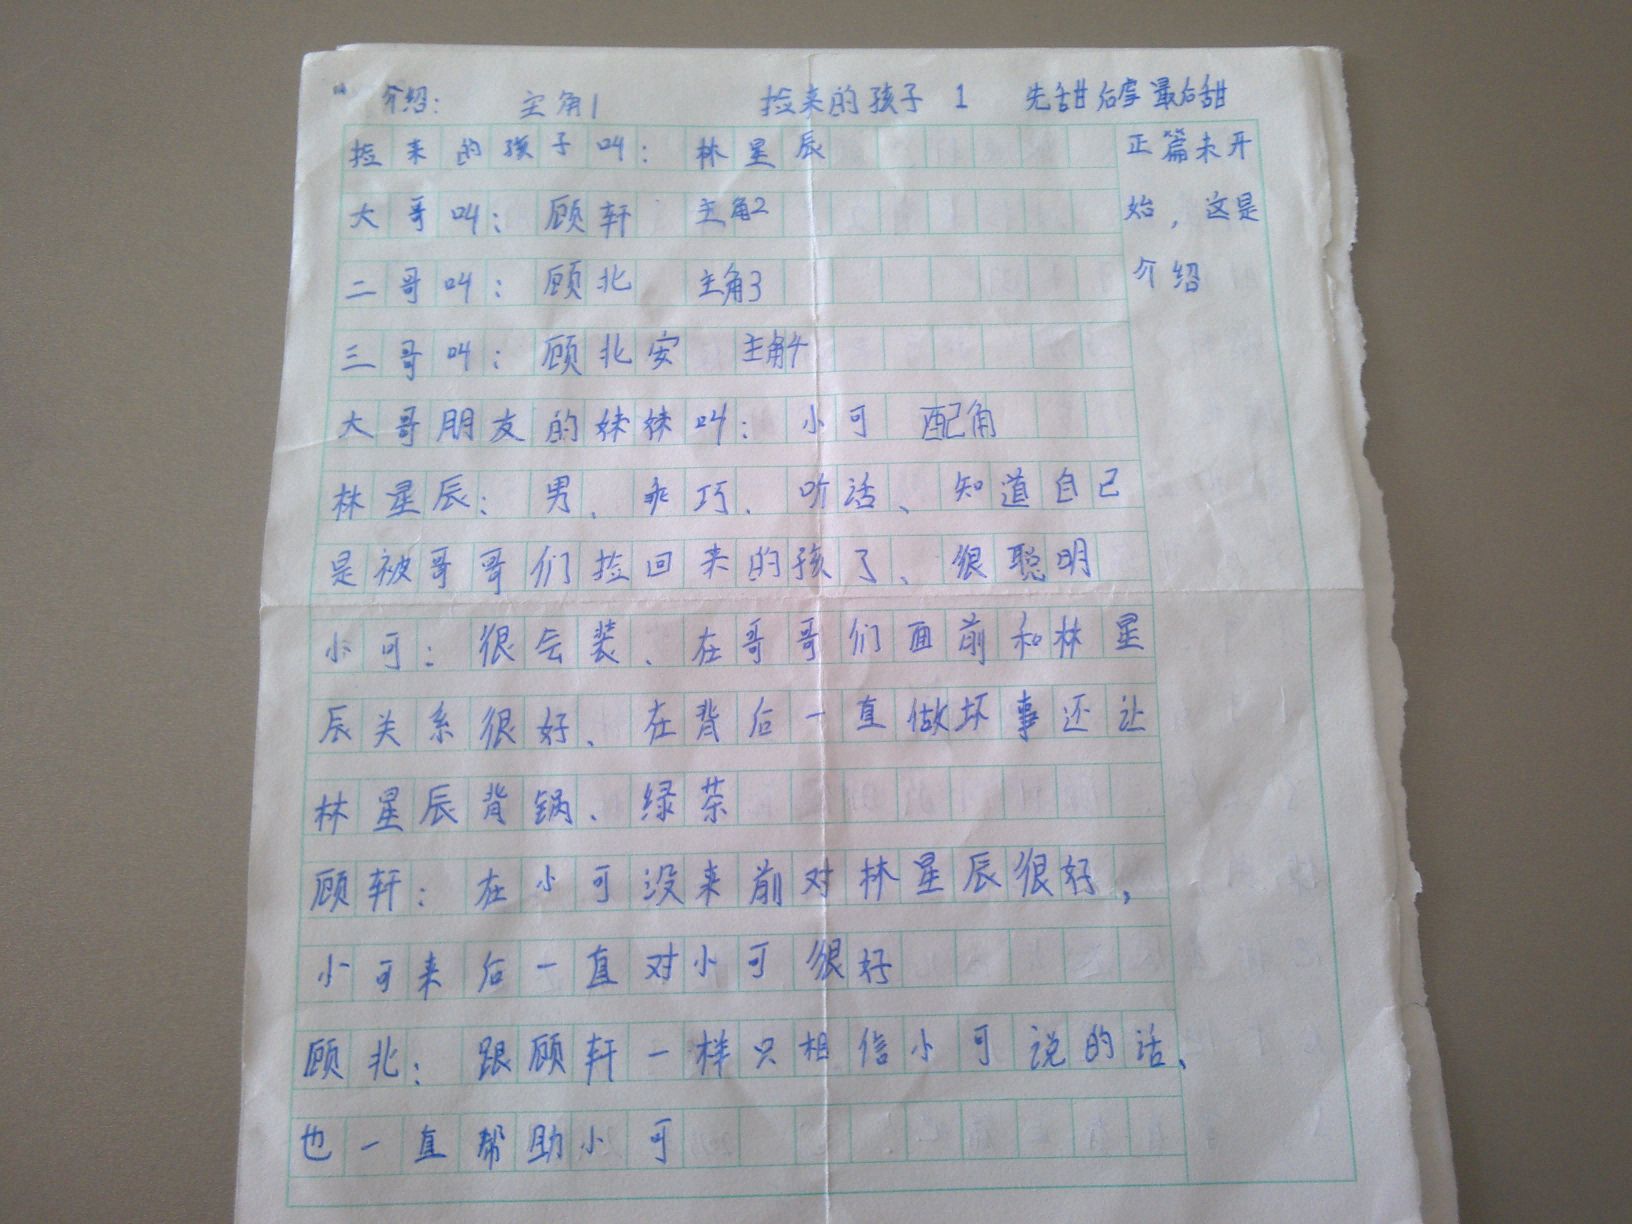 介绍: 主角1 捡来的孩子 1 先甜后虐最后甜
捡来的孩子叫：林星辰
正篇未开
大哥叫：顾轩 主角2
始，这是
二哥叫：顾北 主角3
介绍
三哥叫：顾北安 主角4
大哥朋友的妹妹叫：小可 配角
林星辰：男、乖巧、听话、知道自己
是被哥哥们捡回来的孩子、很聪明
小可：很会装、在哥哥们面前和林星
辰关系很好、在背后一直做坏事还让
林星辰背锅、绿茶
顾轩：在小可没来前对林星辰很好，
小可来后一直对小可很好
顾北：跟顾轩一样只相信小可说的话、
也一直帮助小可